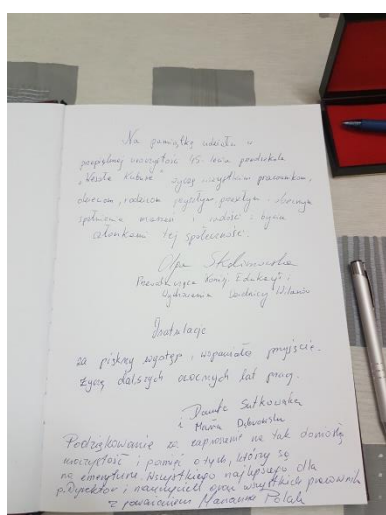 Na pamiątkę udziału w
przepięknej uroczystości 45-lecia przedszkola
„Wesołe Kubusie" życzę wszystkim pracownikom,
dzieciom, rodzicom przyszłym, przeszłym i obecnym
spełnienia marzeń i radości z bycia
członkami tej społeczności.
Olga
Przewodnicząca Komisji Edukacji i
Wychowania Dzielnicy Wilanów
Gratulacje
za piękny występ i wspaniałe przyjęcie.
Życzę dalszych owocnych lat pracy.
Danuta Sutkowska
i Maria Dąbrowska
Podziękowanie za zaproszenie na tak doniosłą
uroczystość i pamięć o tych, którzy są
na emeryturze. Wszystkiego najlepszego dla
p. Dyrektor i nauczycieli oraz wszystkich pracowników
z poważaniem Marianna Polak